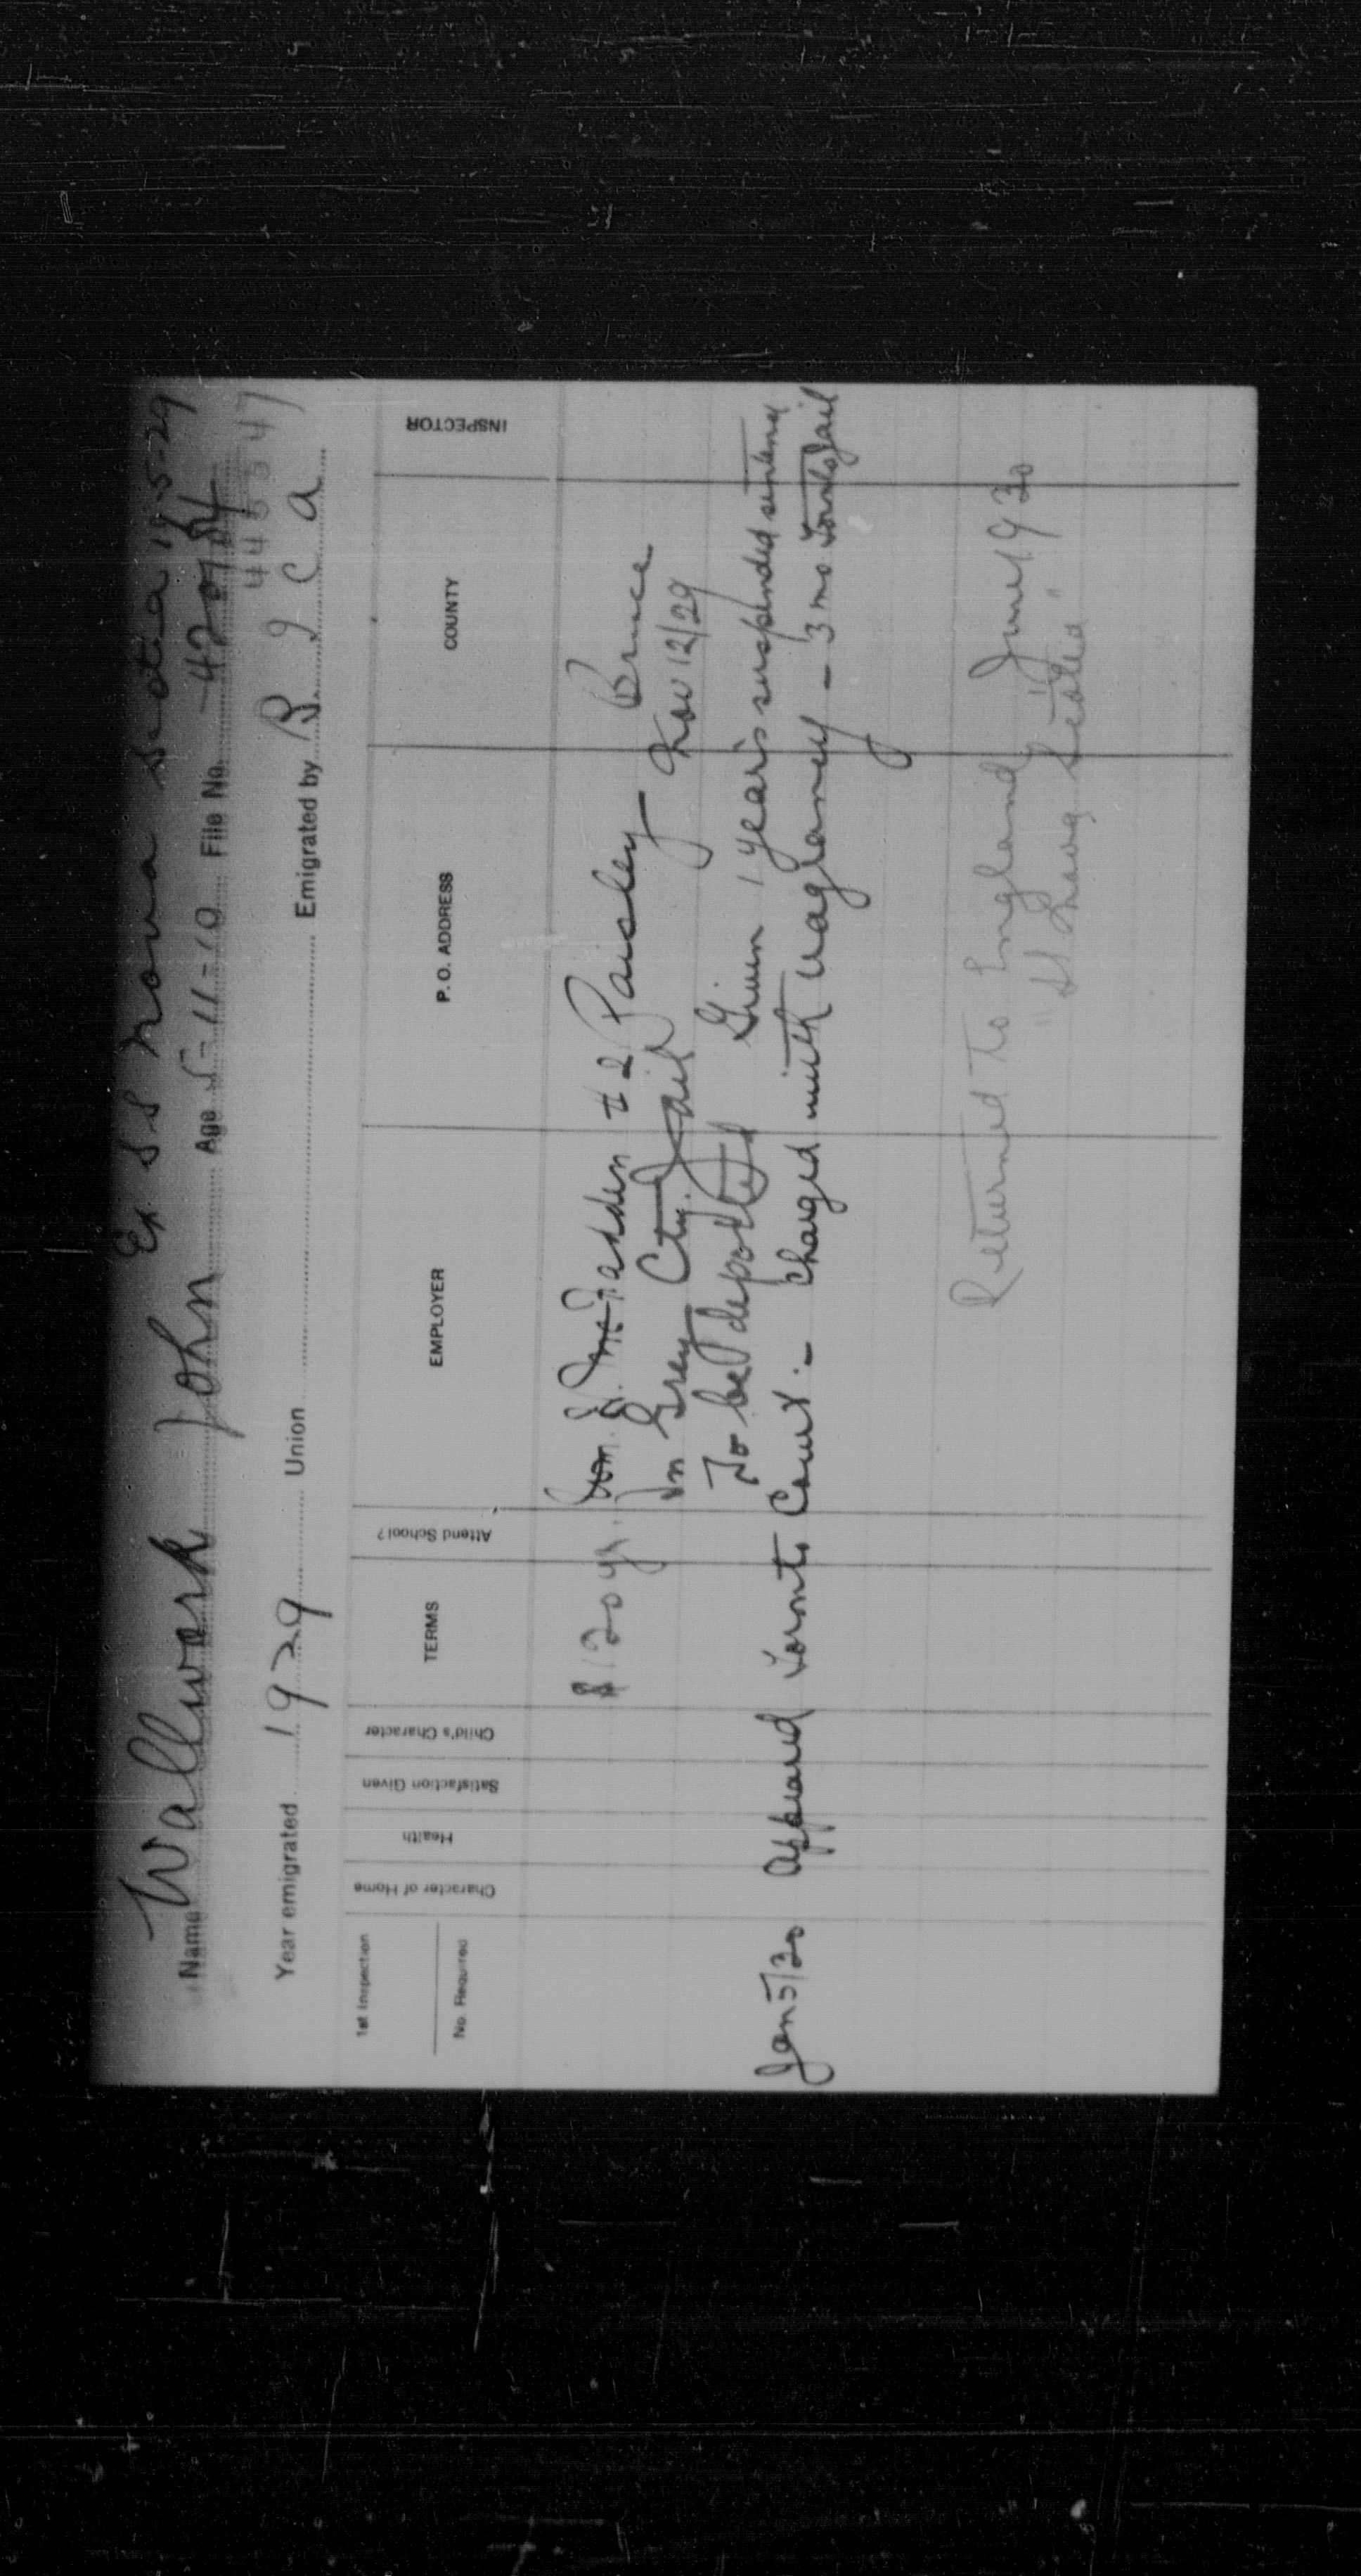 Ex S S Nova Scotia 19-5-29
Name Wallwork John Age 5-11-10 File No. 42084
Year emigrated 1929 Union Emigrated by B I C A
1st Inspection
No. Required
Character of Home
Health
Satisfaction Given
Child's Character
TERMS
Attend School?
EMPLOYER
P. O. ADDRESS
COUNTY
INSPECTOR
$120 yr. Wm J. McFadden #2 Paisley Bruce
In Grey Cty. Jail Nov 12/29
To be deported Given 1 year's suspended sentence
Jan 5/30 Appeared Toronto Court. - charged with vagrancy - 3 mo Toronto Jail
Returned to England June 19 30
"SS Nova Scotia"